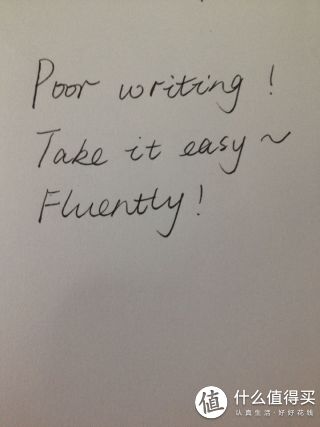 Poor writing!
Take it easy~
Fluently!
值 什么值得买
认真生活·好好花钱